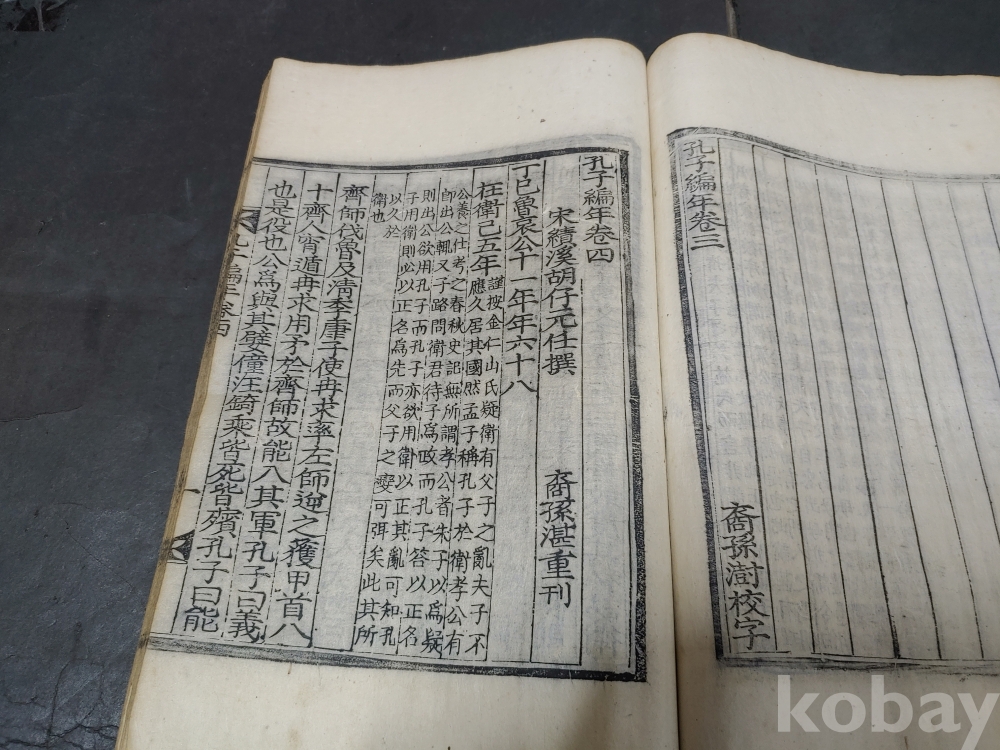 孔子編年卷三
裔孫澍校字
孔子編年卷四
宋績溪胡仔元任撰
裔孫湛重刊
丁巳魯哀公十一年年六十八
在衛己五年
謹按金仁山氏疑衛有父子之亂夫子不
應久居其國然孟子稱孔子於衛孝公有
公養之仕考之春秋史記無所謂孝公者朱子以為疑
即出公輒又子路問衛君待子為政而孔子答以正名
則出公欲用孔子而孔子亦欲用衛以正其亂可知孔
子用衛則必以正名為先而父子之變可弭矣此其所
以久於
衛也
齊師伐魯及清季康子使冉求率左師逆之獲甲首八
十齊人宵遁冉求用矛於齊師故能入其軍孔子曰義
也是役也公為與其嬖僮汪錡乘皆死皆殯孔子曰能
孔子編年卷四
一
kobay